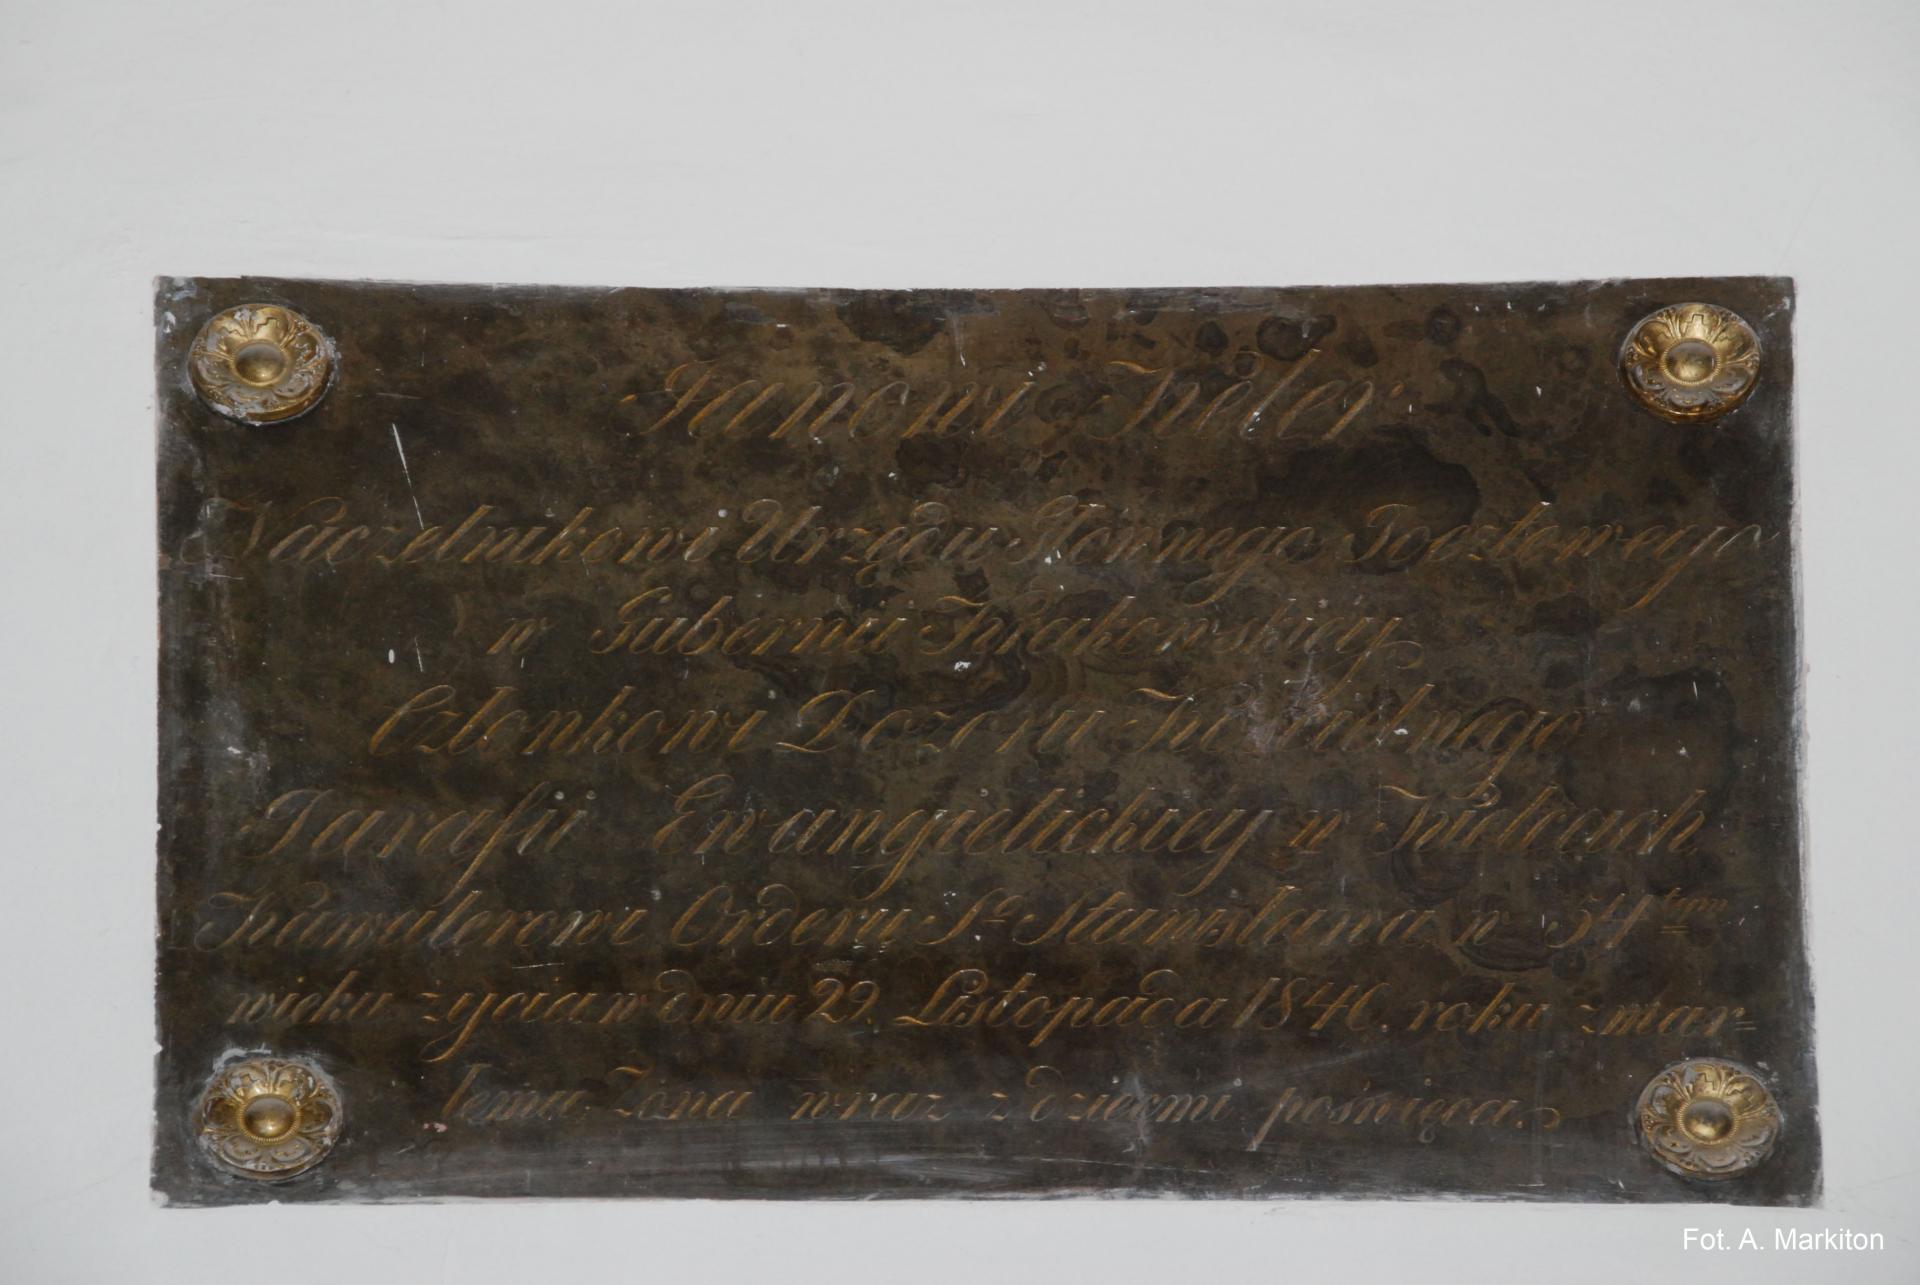 Janowi Keler
Naczelnikowi Urzędu Głównego Pocztowego
w Gubernii Krakowskiéy
Członkowi Dozoru Kościelnego
Parafii Ewangielickiey w Kielcach
Kawalerowi Orderu Sgo Stanisława, w 54tym
wieku życia w dniu 29. Listopada 1846. roku zmar=
łemu, Żona wraz z dziećmi poświęca.
Fot. A. Markiton